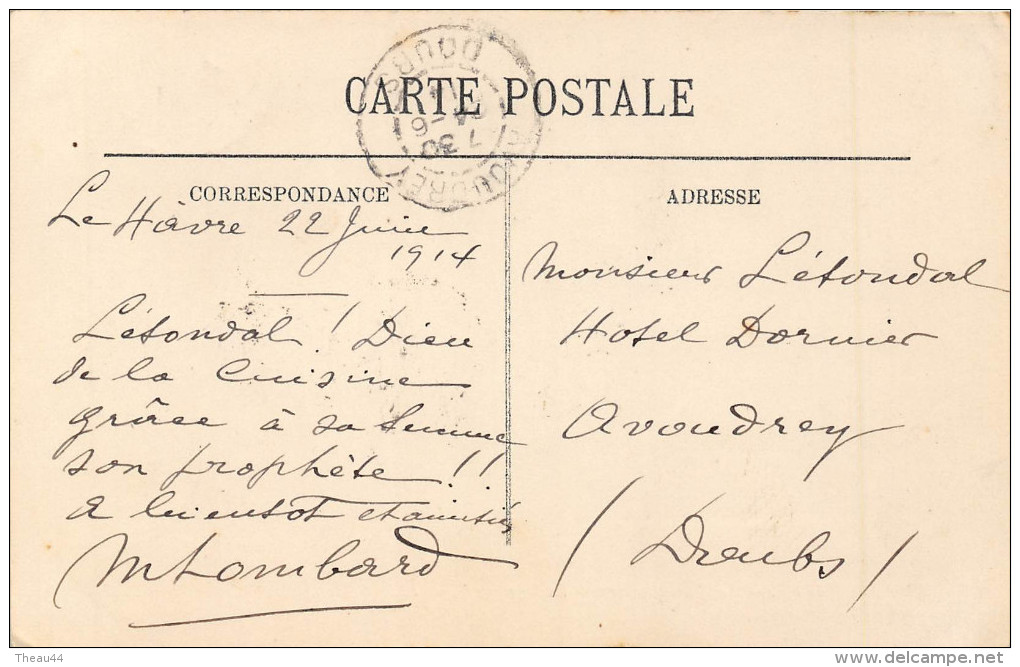 CARTE POSTALE
AVOUDREY
DOUBS
7 30
CORRESPONDANCE
Le Hâvre 22 Juin
1914
Létondal! Dieu
de la Cuisine
grâce à sa femme
son prophète!!
a bientot et amitiés
M Lombard
ADRESSE
Monsieur Létondal
Hotel Dornier
Avoudrey
(Doubs)
Theau44
delcampe.net